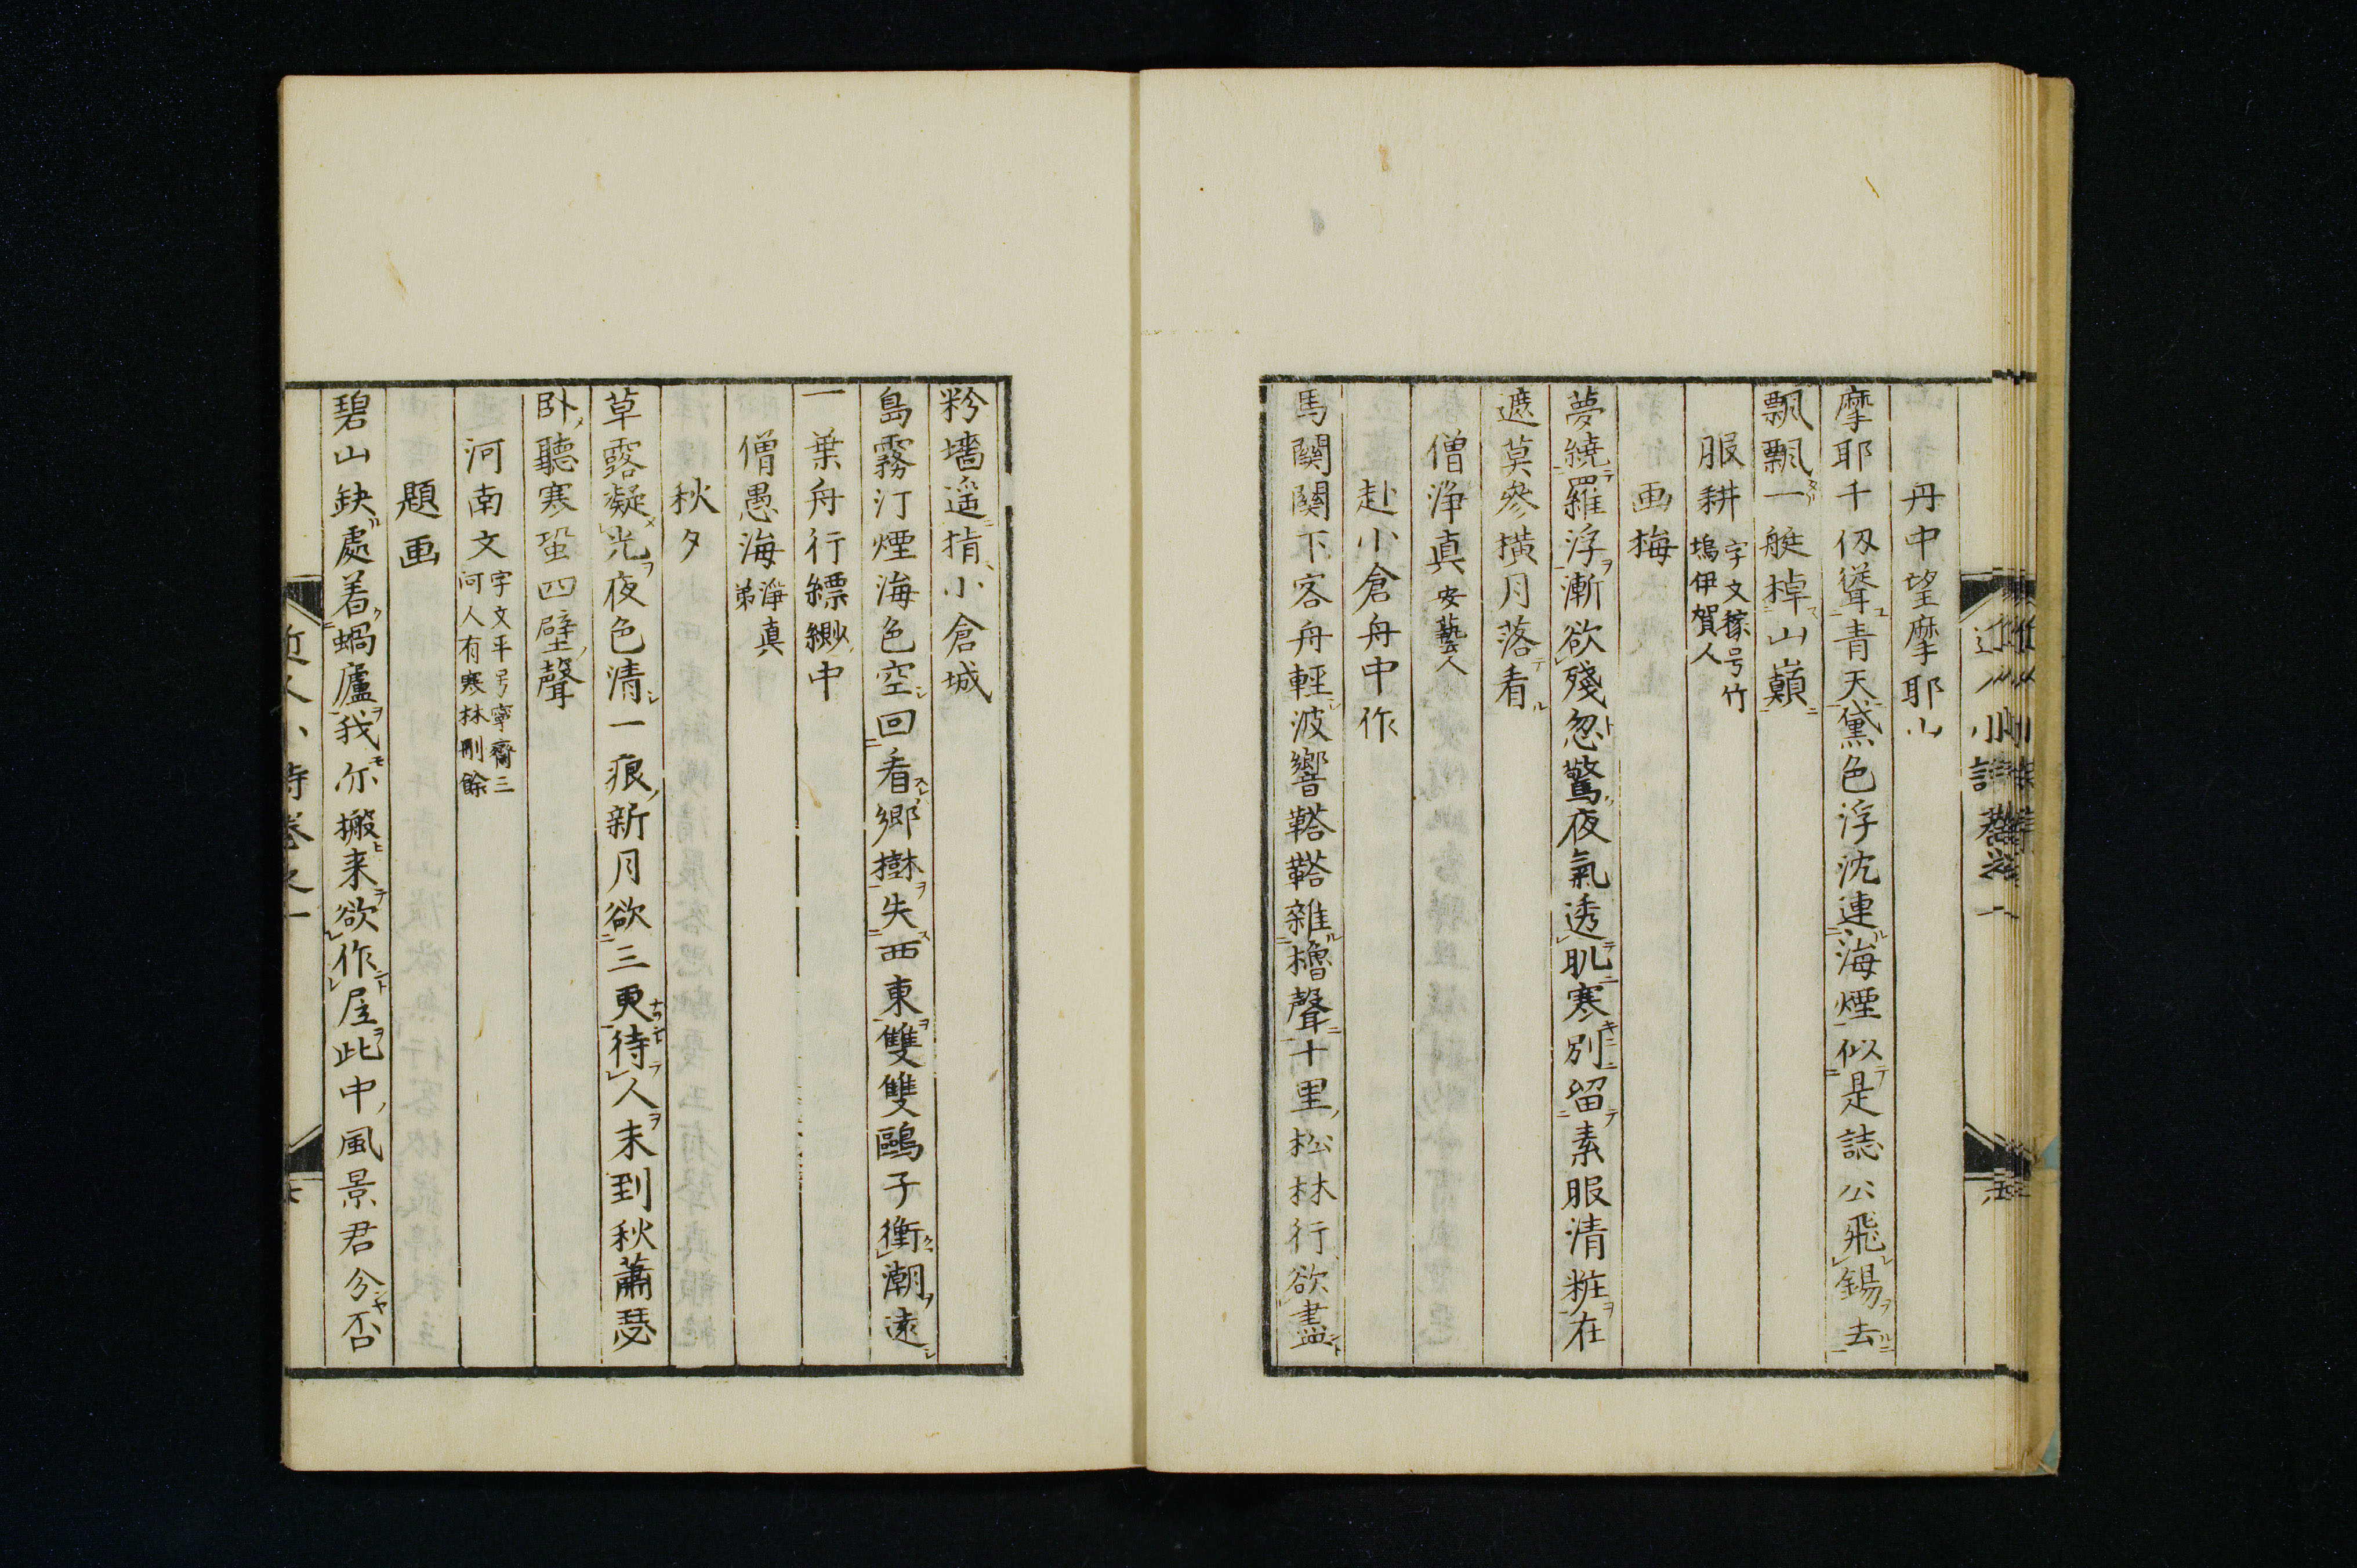 丹中望摩耶山
摩耶千仭聳青天黛色浮沈連海煙似是誌公飛錫去
飄飄一艇棹山巔
服耕 字文稼号竹塢伊賀人
画梅
夢繞羅浮漸欲殘忽驚夜氣透肌寒別留素服清粧在
遮莫參横月落看
僧浄真 安藝人
赴小倉舟中作
馬関関下客舟輕波響鞳鞳雜櫓聲十里松林行欲盡
粉墻遥指小倉城
島霧汀煙海色空回看郷樹失西東雙雙鷗子衝潮遠
一葉舟行縹緲中
僧愚海 淨真弟
秋夕
草露凝光夜色清一痕新月欲三更待人未到秋蕭瑟
卧聽寒蛩四壁聲
河南文 字文平号寧齋三河人有寒林剛餘
題画
碧山缺處着蝸廬我亦搬来欲作屋此中風景君分否
近人小詩巻之一